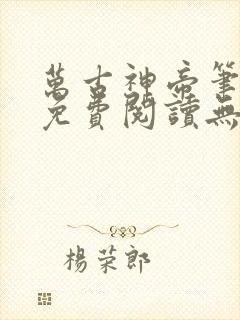 萬古神帝筆
免費閱讀無
楊荣郎